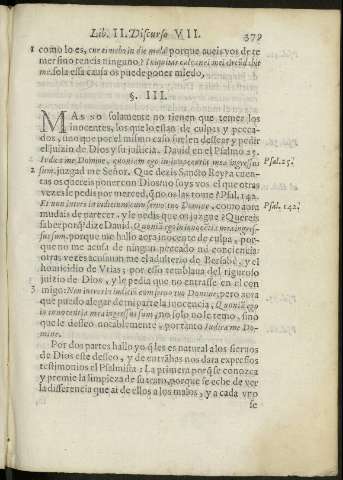 Lib. II. Discurso VII. 379
1 como lo es, cur timebo in die mala? porque aueis vos de te
mer sino teneis ninguno? Iniquitas calcanei mei circũdabit
me. sola essa causa os puede poner miedo.
§. III.
MAS no solamente no tienen que temer los
inocentes, los que lo estan de culpas y pecca-
dos, sino que por el mismo caso suelen dessear y pedir
el juizio de Dios y su justicia. Dauid en el Psalmo 25.
Iudica me Domine, quoniam ego in innocentia mea ingressus Psal. 25.
2 sum. juzgad me Señor. Que dezis Sancto Rey? a cuen-
tas os quereis poner con Dios no soys vos el que otras
vezes le pedis por merced, q̃ no os las tome? Psal. 142.
Et non intres in iudicium cum seruo tuo Domine, como aora Psal. 142.
mudais de parecer, y le pedis que os juzgue? Quereis
saber porq̃ dize Dauid. Quoniã ego in innocentia mea ingres-
sus sum. porque me hallo aora innocente de culpa, por-
que no me acusa de ningun peccado mi conciencia:
otras vezes acusauan me el adulterio de Bersabe, y el
homicidio de Vrias; por esso temblaua del riguroso
juizio de Dios, y le pedia que no entrasse en el con
3 migo: Non intres in iudicio cum seruo tuo Domine, pero aora
que puedo alegar de mi parte la inocencia, Quoniã ego
in innocentia mea ingressus sum, no solo no le temo, sino
que le desseo notablemente, por tanto Iudica me Do-
mine.
Por dos partes hallo yo q̃ les es natural a los sieruos
de Dios este desseo, y de entrãbas nos dara expressos
testimonios el Psalmista: La primera porq̃ se conozca
y premie la limpieza de su trato, porque se eche de ver
la differencia que ai de ellos a los malos, y a cada vno
se